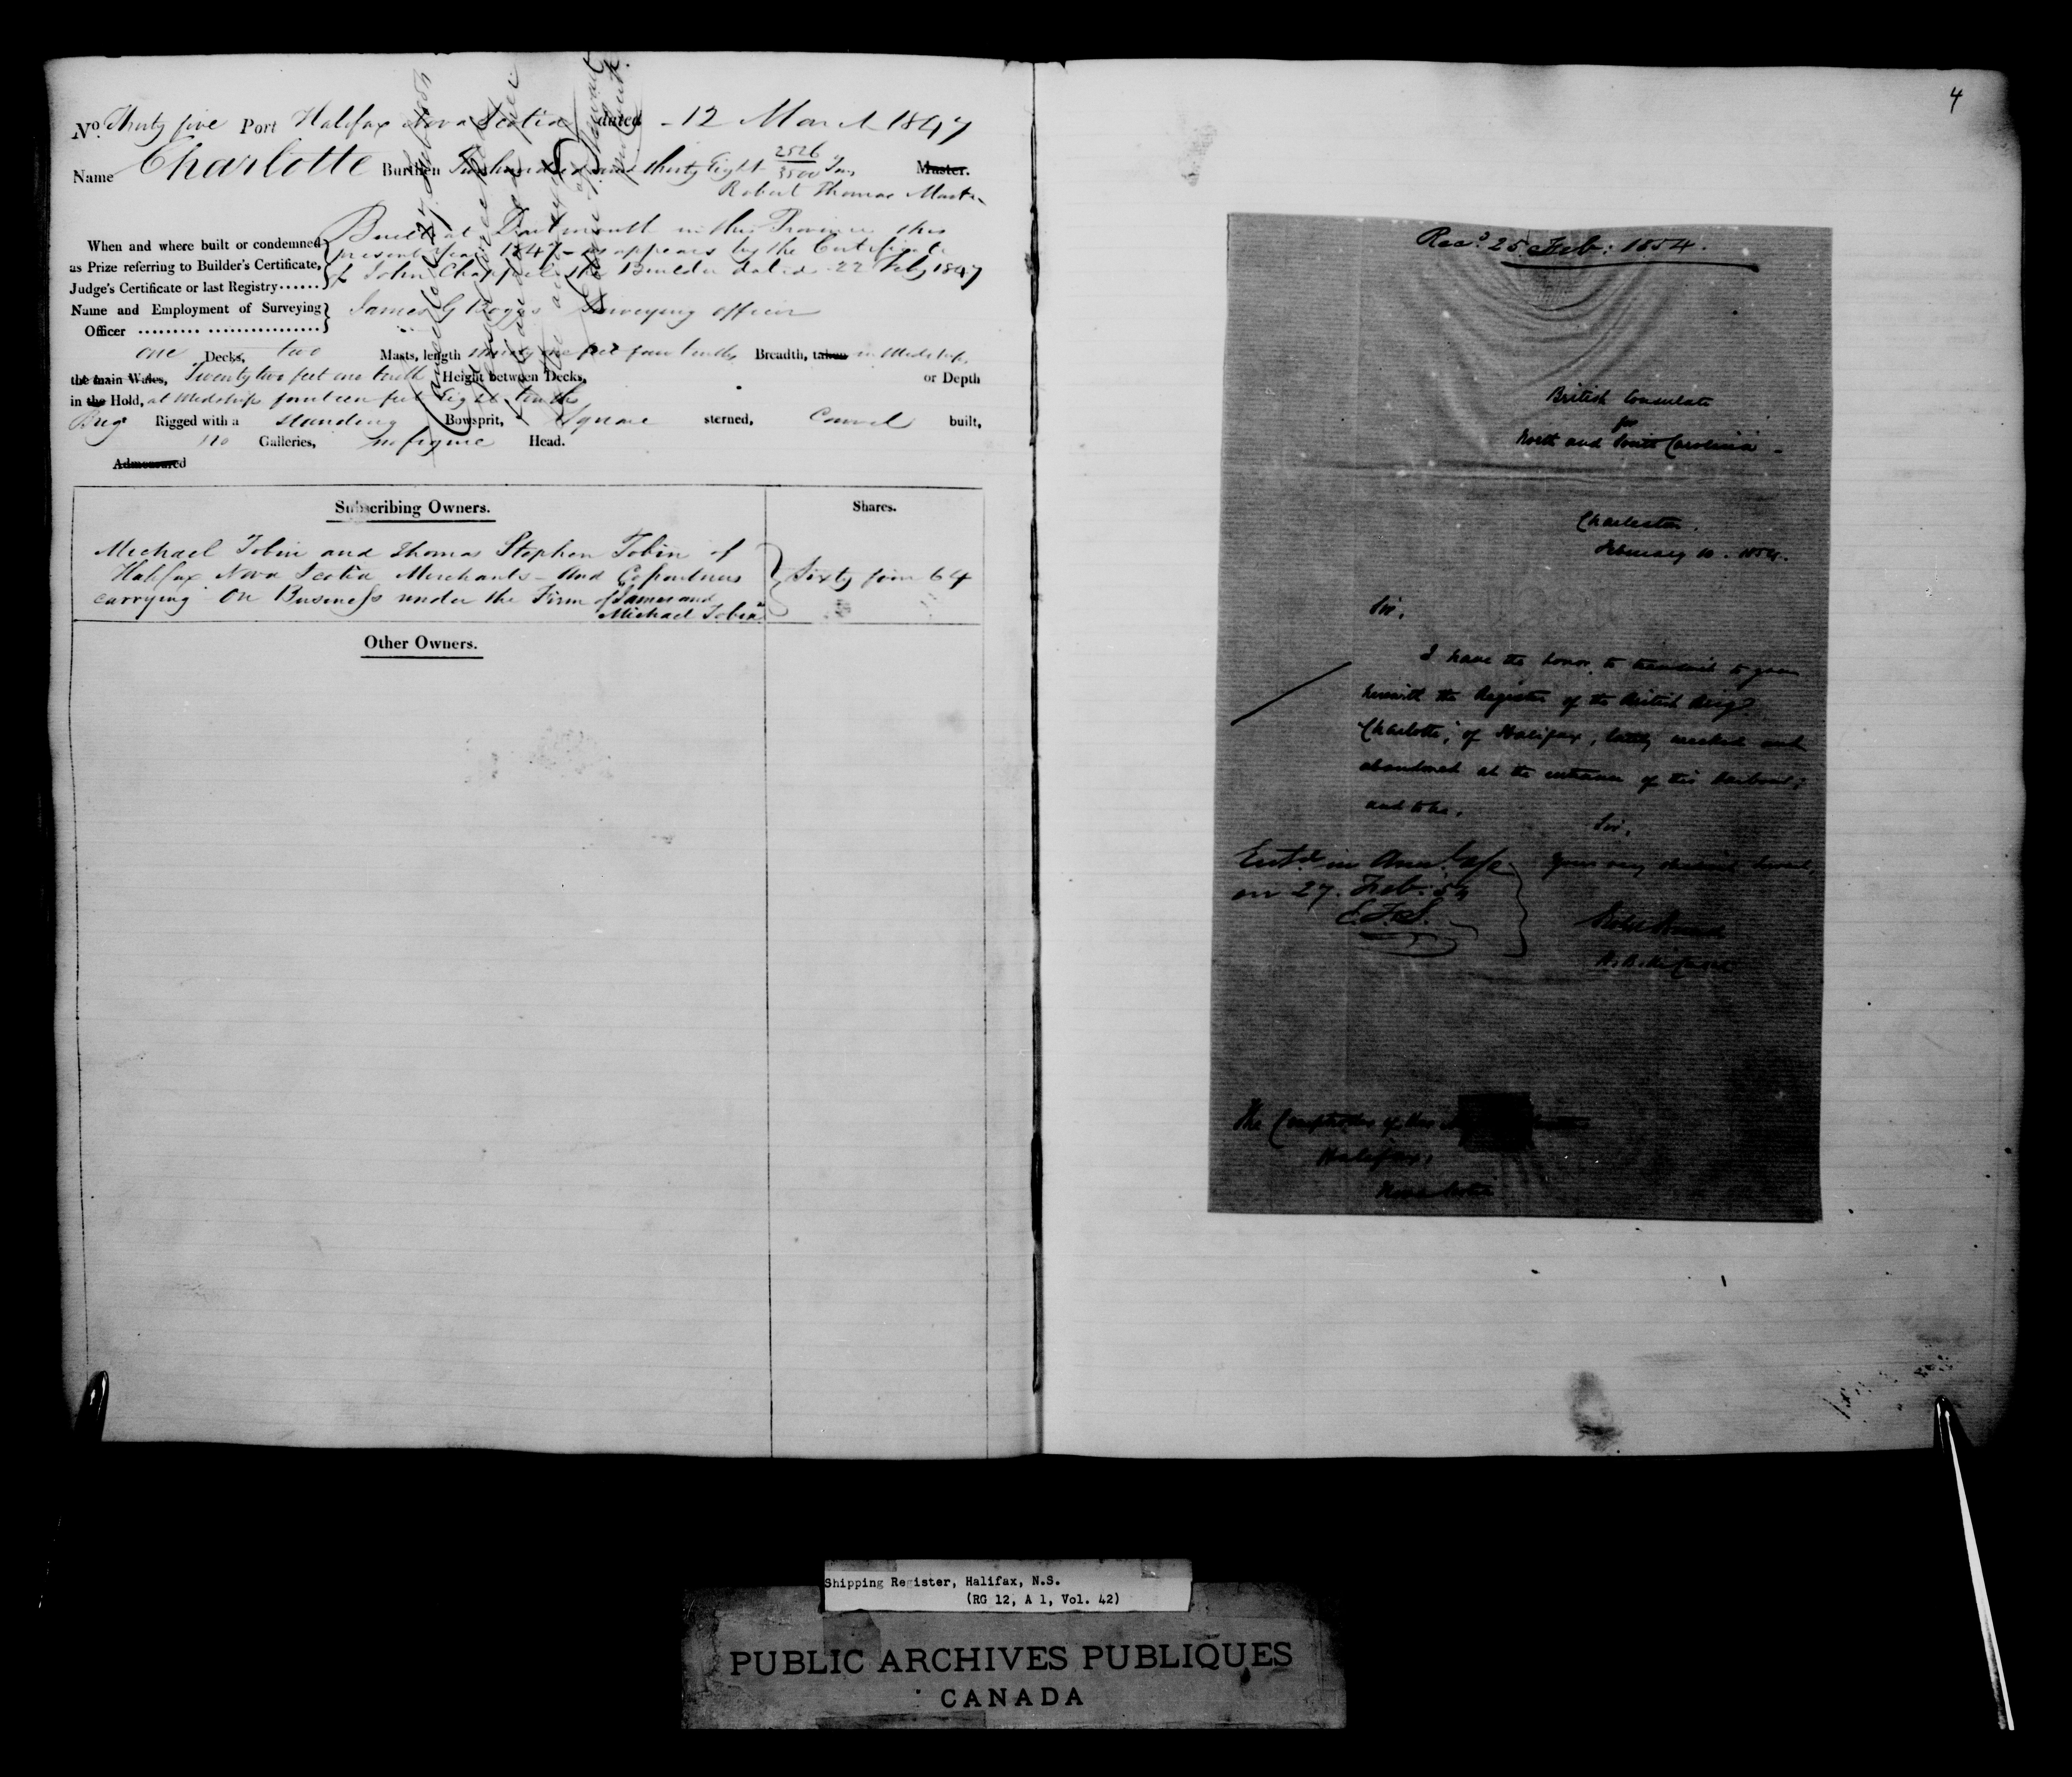 No. Thirty five Port Halifax Nova Scotia dated - 12 March 1847
Name Charlotte Burthen Two hundred and thirty Eight 2526/3500 Tons Master.
Robert Thomas Master
Built at Dartmouth in this Province this
When and where built or condemned present year 1847 - as appears by the Certificate
as Prize referring to Builder's Certificate, of John Chappell the Builder dated 22 Feby 1847
Judge's Certificate or last Registry......
Name and Employment of Surveying James G Boggs Surveying officer
Officer
one Decks, two Masts, length feet four tenths Breadth, taken in Midships
the main Wales, Twenty two feet one tenth Height between Decks, or Depth
in the Hold, at Midships fourteen feet Eight tenths
Brig Rigged with a standing Bowsprit, Square sterned, Carvel built,
no Galleries, no figure Head.
Admeasured
Subscribing Owners. Shares.
Michael Tobin and Thomas Stephen Tobin of
Halifax Nova Scotia Merchants - and Copartners Sixty four 64
carrying on Business under the Firm of James and
Michael Tobin
Other Owners.
4
Recd. 25 Feb: 1854.
British Consulate
for
North and South Carolina -
Charleston.
February 10. 1854.
Sir,
I have the honor to transmit to you
herewith the Register of the British Brig
"Charlotte", of Halifax, lately wrecked and
abandoned at the entrance of this harbour;
and to be,
Sir,
Your very obedient Servt,
Entd. in
on 27. Feb. 54
E.F.S.
H.B.M. Consul
The Comptroller of Her
Halifax,
Nova Scotia
Shipping Register, Halifax, N.S.
(RG 12, A 1, Vol. 42)
PUBLIC ARCHIVES PUBLIQUES
CANADA